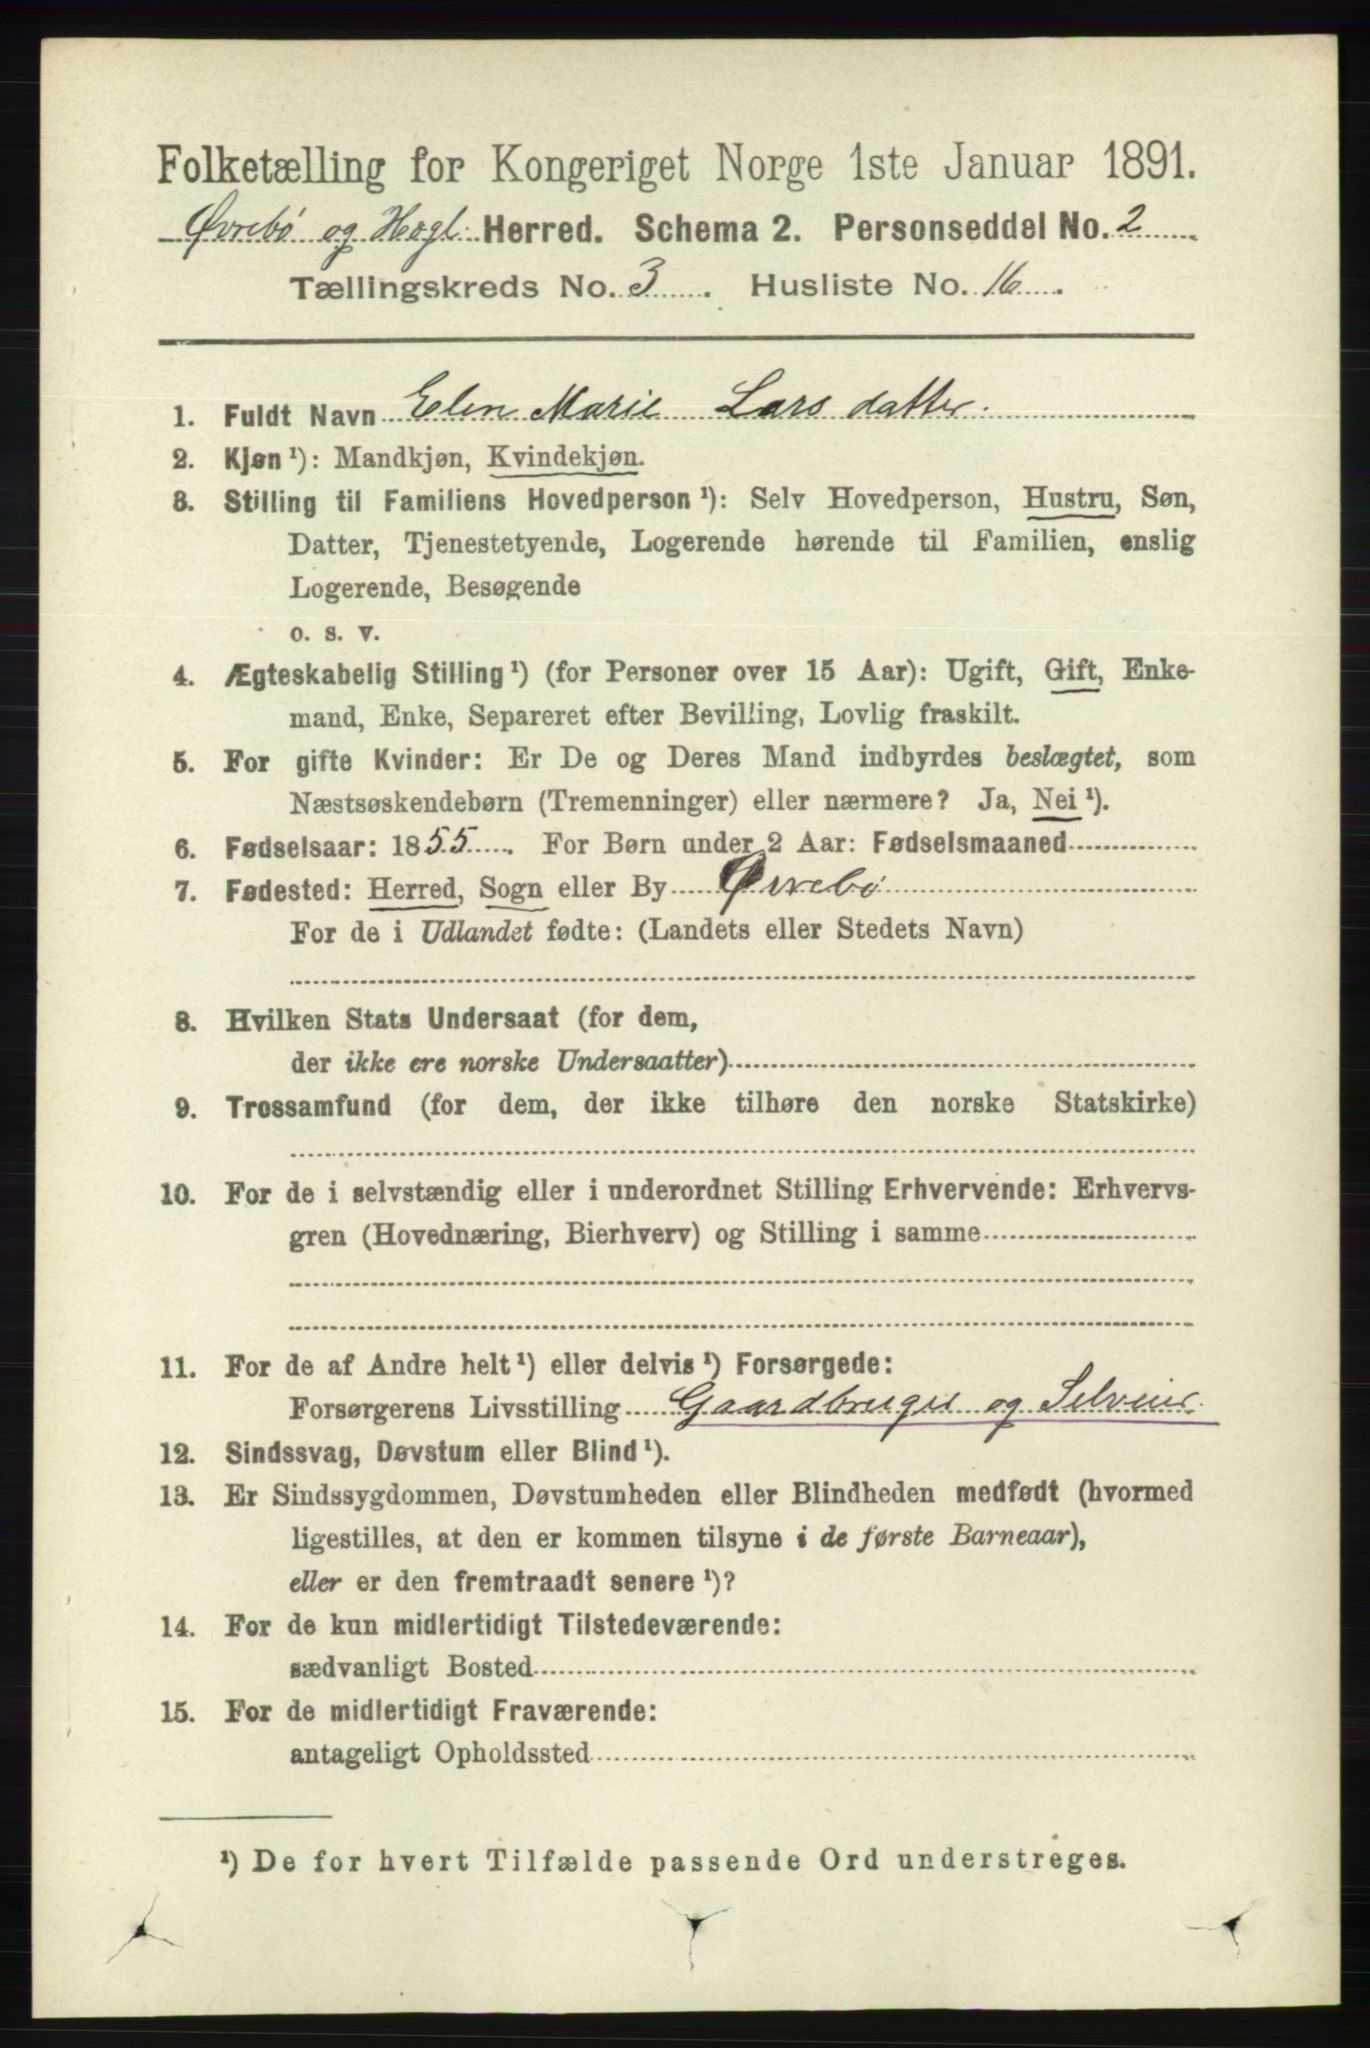 Folketælling for Kongeriget Norge 1ste Januar 1891.
Øvrebø og Hægl. Herred. Schema 2. Personseddel No. 2
Tællingskreds No. 3. Husliste No. 16.
1. Fuldt Navn Elen Marie Lars datter.
2. Kjøn ¹): Mandkjøn, Kvindekjøn.
3. Stilling til Familiens Hovedperson ¹): Selv Hovedperson, Hustru, Søn,
Datter, Tjenestetyende, Logerende hørende til Familien, enslig
Logerende, Besøgende
o. s. v.
4. Ægteskabelig Stilling ¹) (for Personer over 15 Aar): Ugift, Gift, Enke-
mand, Enke, Separeret efter Bevilling, Lovlig fraskilt.
5. For gifte Kvinder: Er De og Deres Mand indbyrdes beslægtet, som
Næstsøskendebørn (Tremenninger) eller nærmere? Ja, Nei ¹).
6. Fødselsaar: 1855. For Børn under 2 Aar: Fødselsmaaned
7. Fødested: Herred, Sogn eller By Øvrebø
For de i Udlandet fødte: (Landets eller Stedets Navn)
8. Hvilken Stats Undersaat (for dem,
der ikke ere norske Undersaatter)
9. Trossamfund (for dem, der ikke tilhøre den norske Statskirke)
10. For de i selvstændig eller i underordnet Stilling Erhvervende: Erhvervs-
gren (Hovednæring, Bierhverv) og Stilling i samme
11. For de af Andre helt ¹) eller delvis ¹) Forsørgede:
Forsørgerens Livsstilling Gaardbruger og Selveier.
12. Sindssvag, Døvstum eller Blind ¹).
13. Er Sindssygdommen, Døvstumheden eller Blindheden medfødt (hvormed
ligestilles, at den er kommen tilsyne i de første Barneaar),
eller er den fremtraadt senere ¹)?
14. For de kun midlertidigt Tilstedeværende:
sædvanligt Bosted
15. For de midlertidigt Fraværende:
antageligt Opholdssted
¹) De for hvert Tilfælde passende Ord understreges.